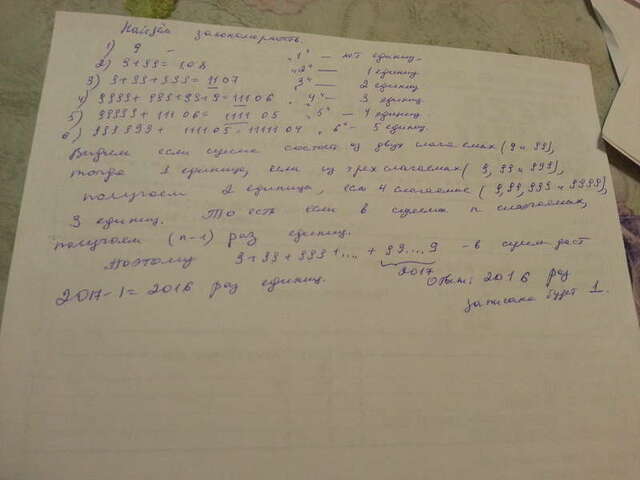 Найдём закономерность.
1) 9 - „1" - нет единиц.
2) 9+99=108 „2" — 1 единиц
3) 9+99+999=1107 „3" — 2 единиц
4) 9999+999+99+9=11106 „4" — 3 единиц
5) 99999+11106=111105 „5" - 4 единиц.
6) 999999+111105=1111104 „6" - 5 единиц.
Видим если сумма состоит из двух слагаемых (9 и 99),
тогда 1 единица, если из трех слагаемых (9, 99 и 999),
получаем 2 единицы, если 4 слагаемые (9,99,999 и 9999),
3 единиц. То есть если в сумме n слагаемых,
получаем (n-1) раз единиц.
Поэтому 9+99+999+....+99...9 - в сумме даст
2017
2017-1=2016 раз единиц. Ответ: 2016 раз
записана будет 1.